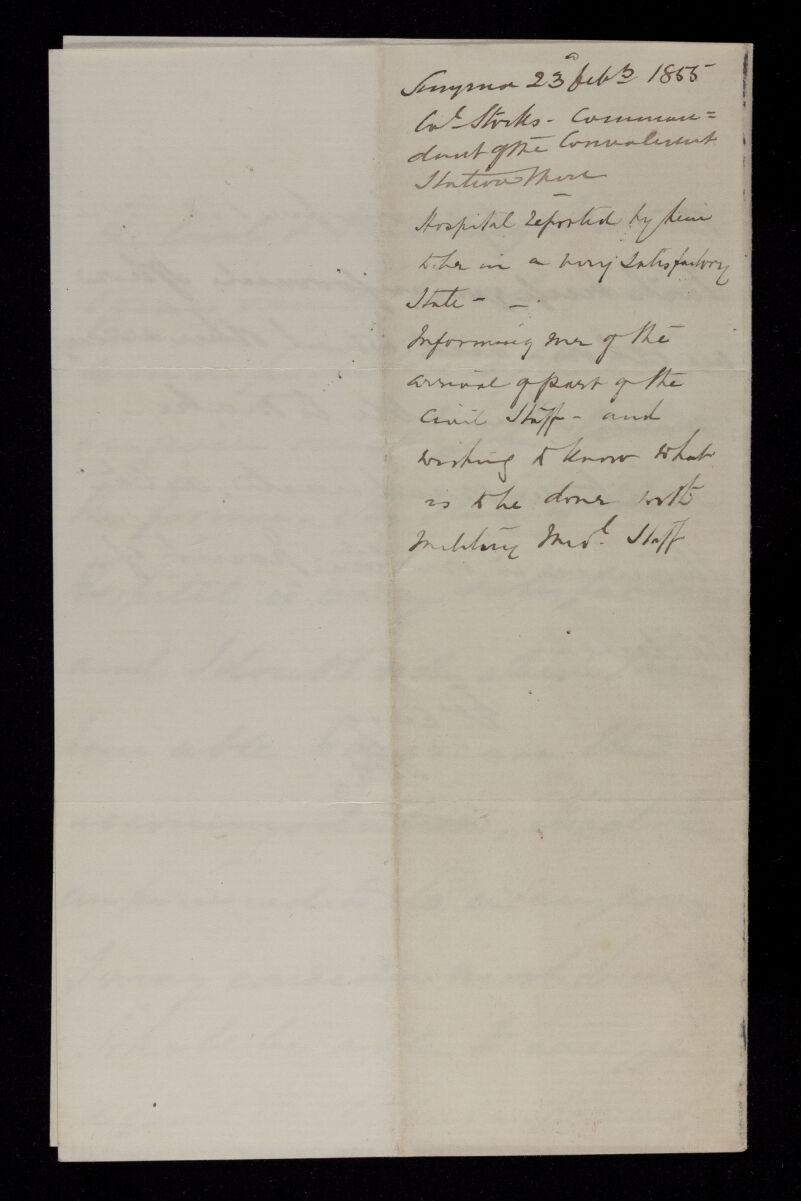 Smyrna 23d Feb 1855
Col. Storks - Comman=
dant of the Convalescent
Station there
Hospital reported by him
to be in a very satisfactory
State -
Informing me of the
arrival of part of the
Civil Staff - and
wishing to know what
is to be done with
Military Medl. Staff